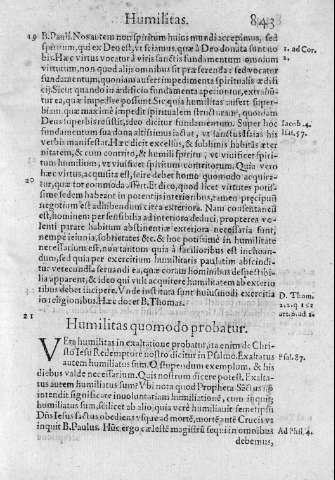 Humilitas. 843
19 B. Pauli. Nos autem non spiritum huius mundi accepimus, sed
spiritum, qui ex Deo est, vt sciamus, quæ à Deo donata sunt no
bis. Hæc virtus vocatur à viris sanctis fundamentum omnium
virtutum, non quod alijs omnibus sit præferenda: sed vocatur
fundamentum, quoniam aufert impedimenta spiritualis ædifi
cij. Sicut quando in ædificio fundamenta aperiuntur, extrahũ-
tur ea, quæ impedire possunt. Sic quia humilitas aufert super-
biam, quæ maximè impedit spiritualem structuram, quoniam
Deus superbis resistit, ideo dicitur fundamentum. Super hoc
fundamentum sua dona altissimus iactat, vt sanctus Isaias his
verbis manifestat. Hæc dicit excelsus, & sublimis habitās æter
nitatem, & cum contrito, & humili spiritu, vt viuificet spiri-
tum humilium, vt viuificet spiritum contritorum. Quia verò
hæc virtus, acquisita est, scire debet homo quomodo acquira-
20 tur, quæ tot commoda affert. Et dico, quod licet virtutes potis-
simè sedem habeant in potentijs interioribus, tamen præcipuū
negotium est adhibendum circa exteriora. Nam consentaneū
est, hominem per sensibilia ad interiora deduci, propterea vo-
lenti parare habitum abstinentiæ exteriora necessaria sunt,
nempe ieiunia, sobrietates &c. & hoc potissimè in humilitate
necessarium est, non tantum quia à similioribus est inchoan-
dum, sed quia per exercitium humilitatis paulatim abscindi-
tur verecundia seruandi ea, quæ coram hominibus despectibi-
lia apparent, & ideo qui vult acquirere humilitatem ab exterio
ribus debet incipere. Vnde instituta sunt huiusmodi exercitia
in religionibus. Hæc docet B. Thomas.
1. ad Cor.
2.
Iacob. 4.
Isai. 57.
D. Thom.
21 Humilitas quomodo probatur.
VEra humilitas in exaltatione probatur, ita enim de Chri-
sto Iesu Redemptore nostro dicitur in Psalmo. Exaltatus
autem humiliatus sum. O stupendum exemplum, & his
diebus valde necessarium. Quis nostrum dicere potest. Exalta-
tus autem humiliatus sum? Vbi nota quod Propheta
intendit significare inuoluntariam humiliationē, cum inquit;
humiliatus sum, scilicet ab alio, quia verè humiliauit semetipsū
Dñs Iesus factus obediens vsque ad mortē, mortē autē Crucis vt
inquit B. Paulus. Hūc ergo cælestē magistrū sequi in omnibus
debemus,
Psal. 87.
Ad Phil. 4.